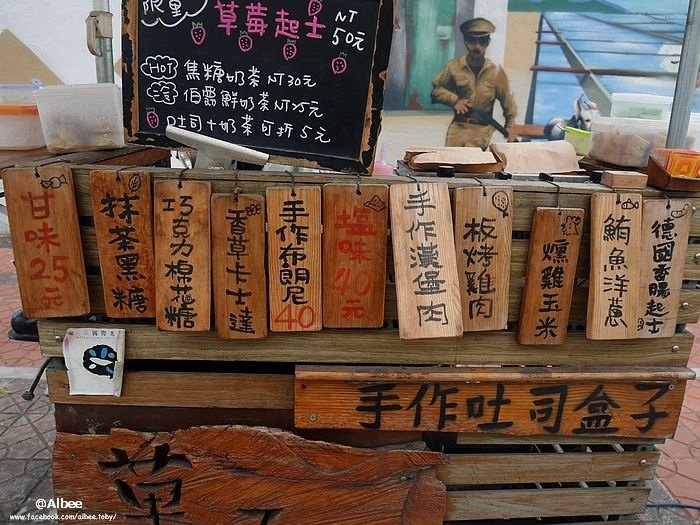 限量
草莓起士 NT
50元
HOT 焦糖奶茶 NT30元
伯爵鮮奶茶 NT35元
吐司+奶茶可折5元
甘味
25元
抹茶黑糖
巧克力棉花糖
香草卡士達
手作布朗尼
40
塩味
40元
手作漢堡肉
板烤雞肉
燻雞玉米
鮪魚洋蔥
德國香腸起士
手作吐司盒子
@Albee
www.facebook.com/albee.toby/